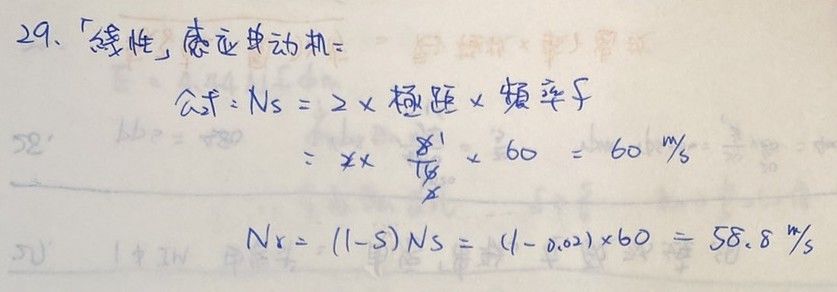 29、「綫性」感应电动机=
公式:Ns = 2 × 極距 × 頻率f
= 2 × 8/16 × 60 = 60 m/s
Nr = (1-S) Ns = (1-0.02)×60 = 58.8 m/s